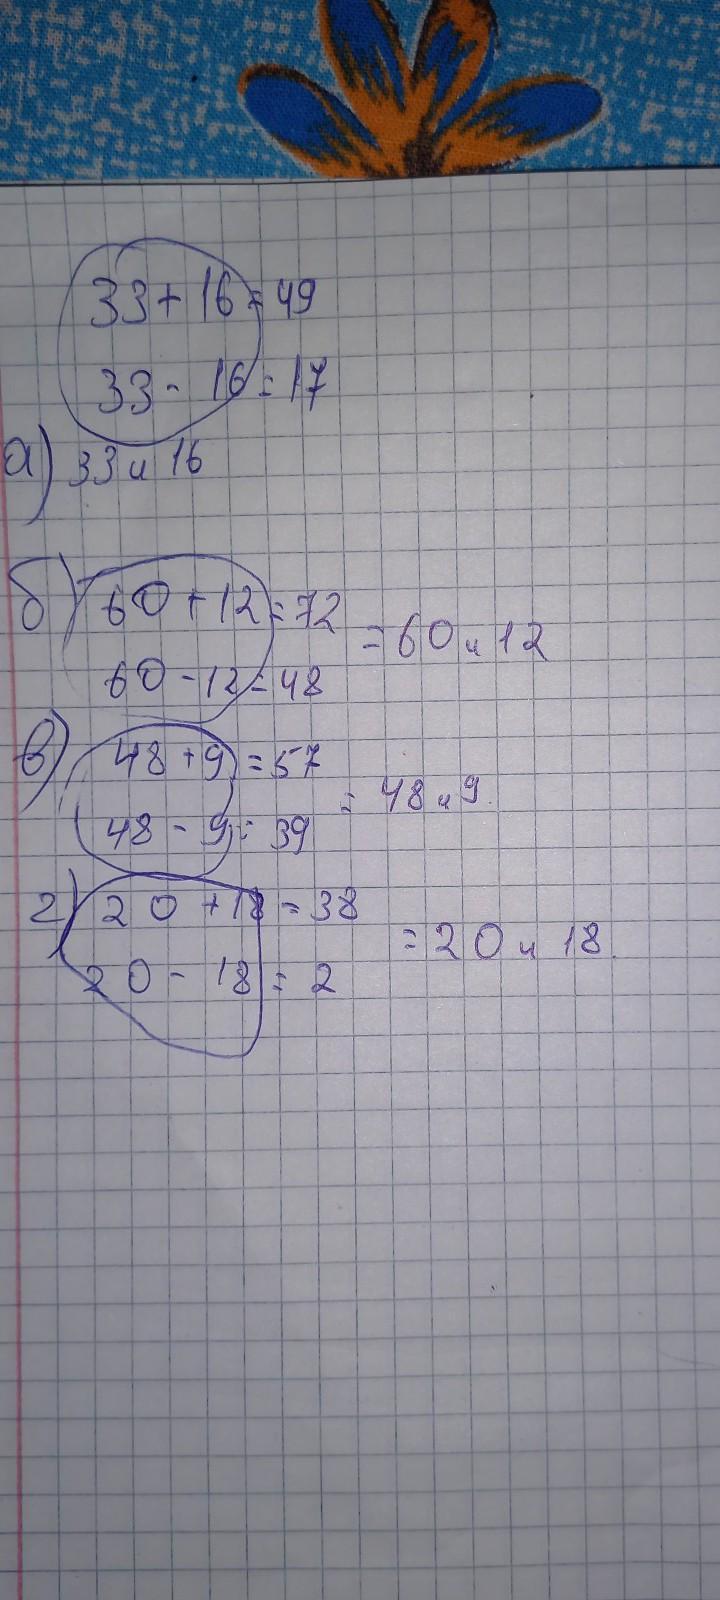 33+16=49
33-16=17
а) 33 и 16
б) 60+12=72
=60 и 12
60-12=48
в) 48+9=57
= 48 и 9.
48-9=39
г) 20+18=38
=20 и 18.
20-18=2